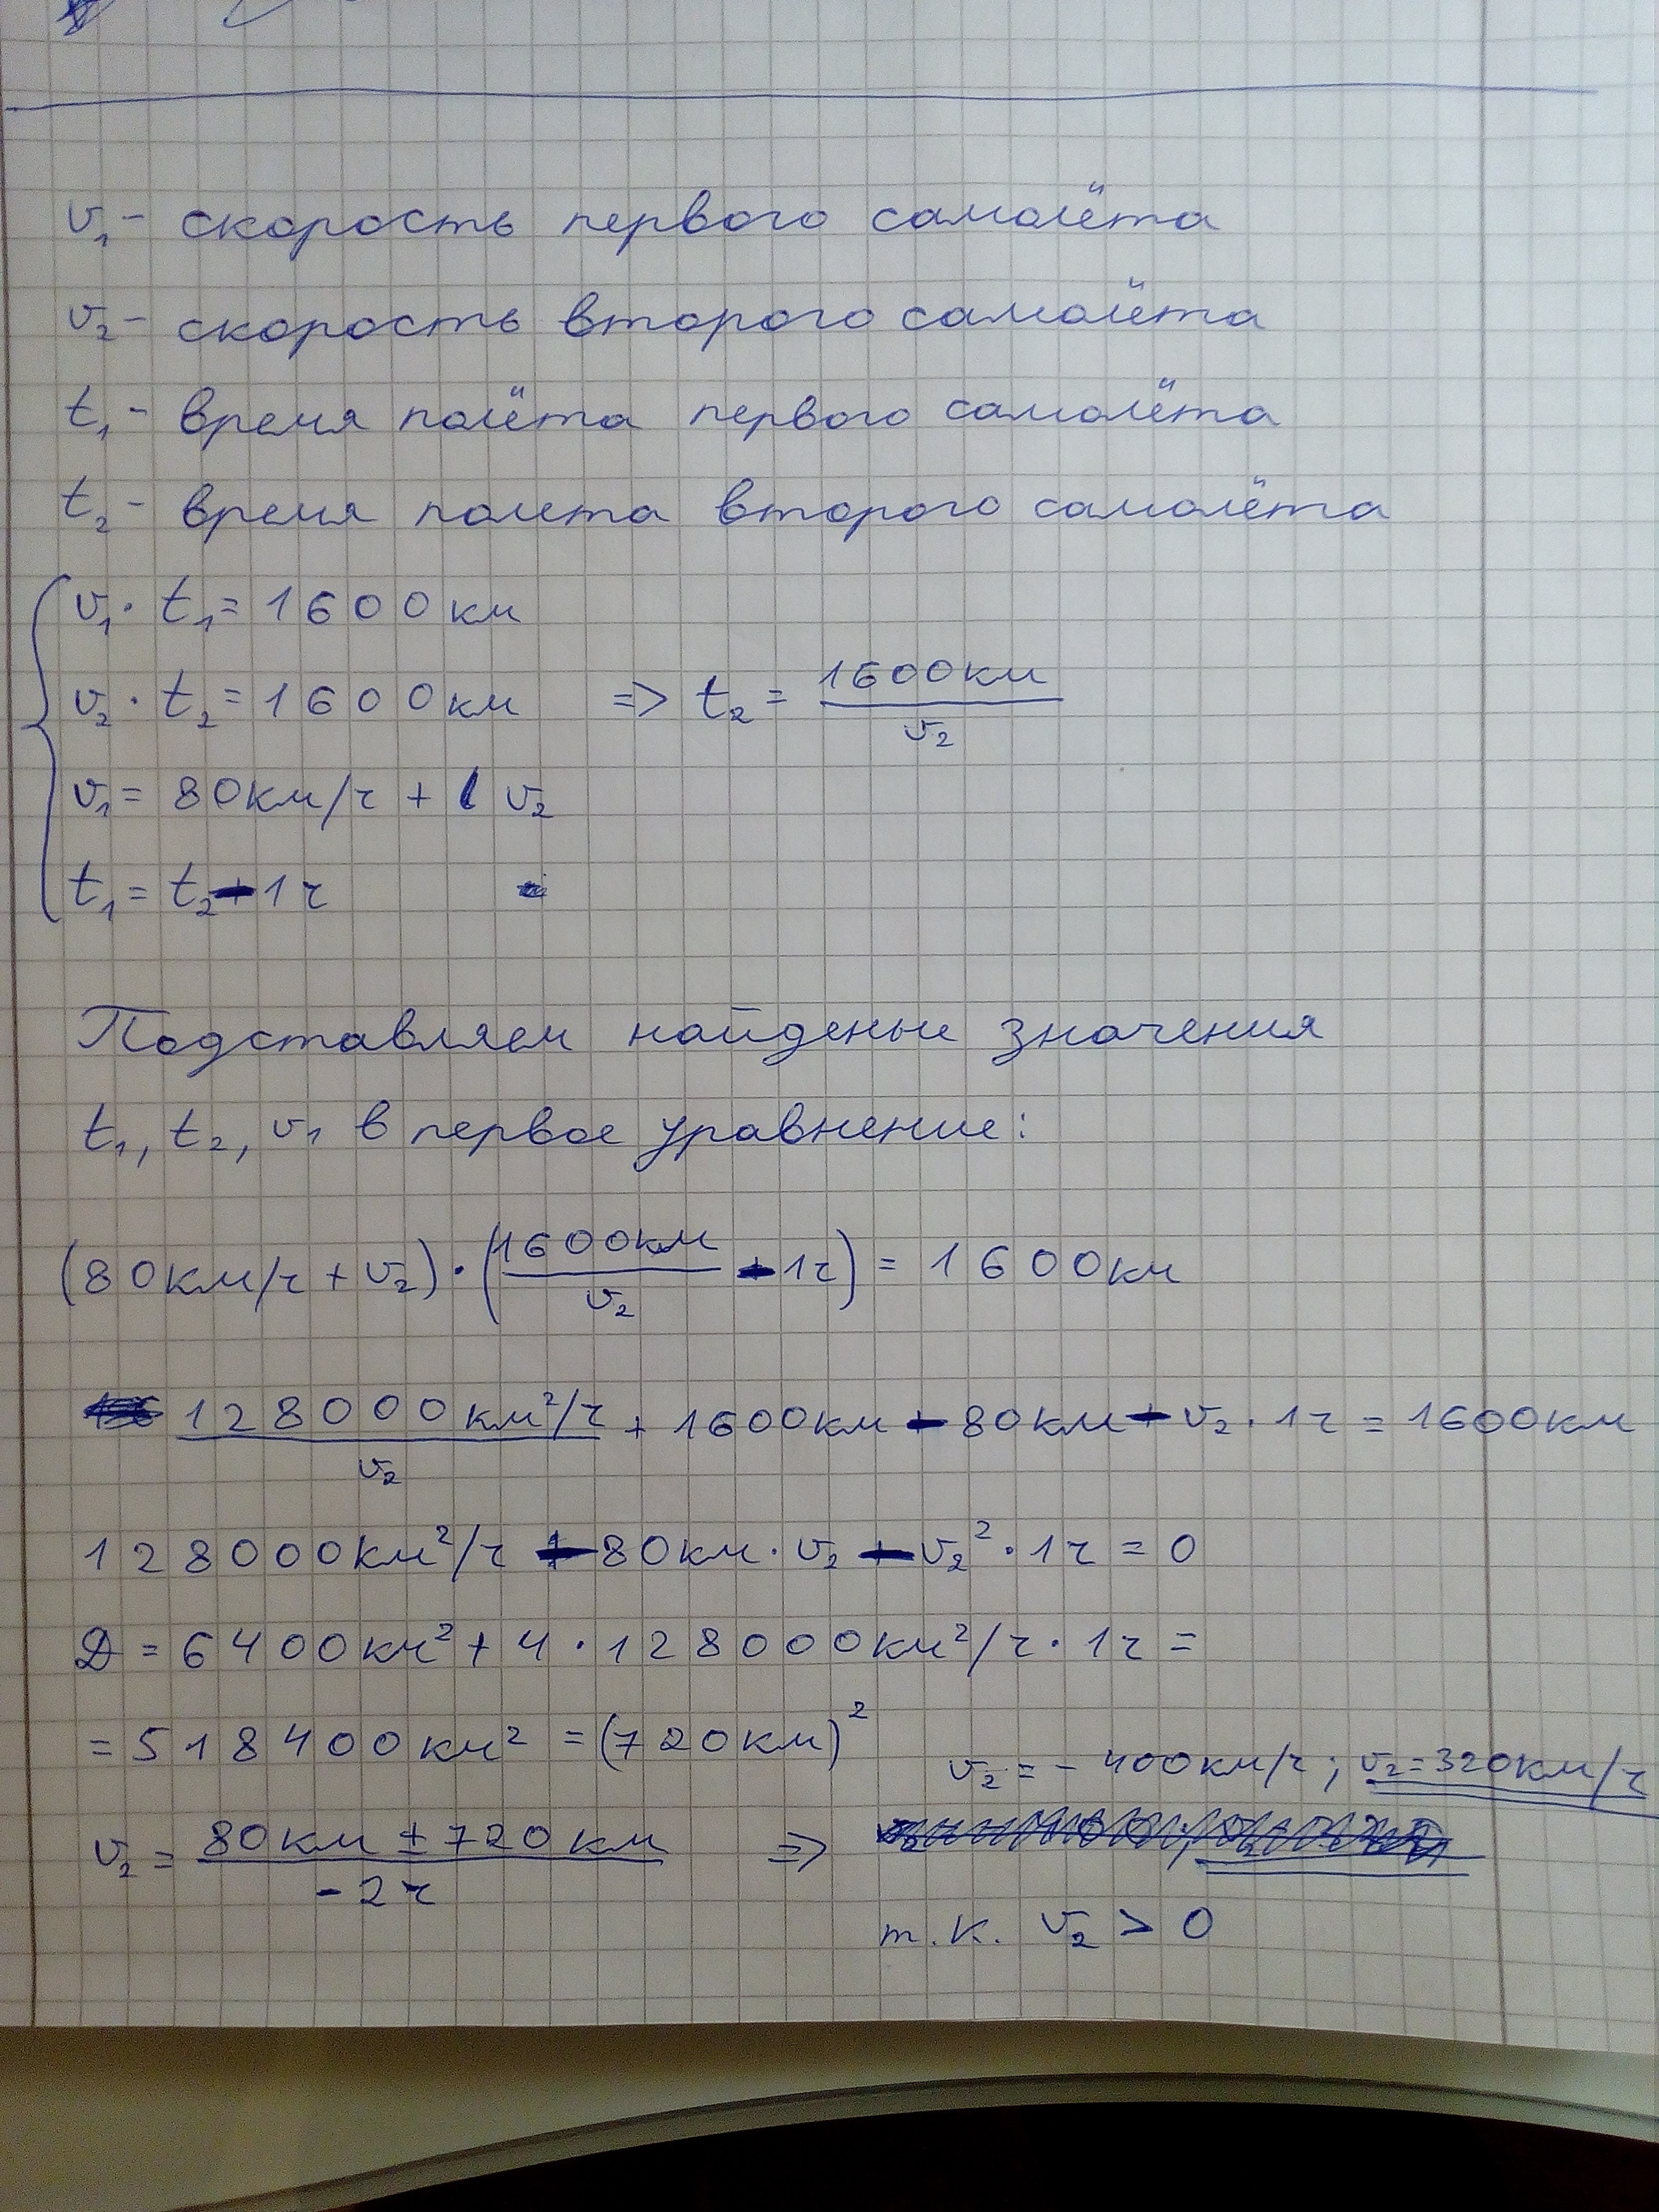 v₁ - скорость первого самолёта
v₂ - скорость второго самолёта
t₁ - время полёта первого самолёта
t₂ - время полета второго самолёта
v₁ · t₁ = 1600 км
v₂ · t₂ = 1600 км => t₂ = 1600 км / v₂
v₁ = 80 км/ч + v₂
t₁ = t₂ - 1 ч
Подставляем найденые значения
t₁, t₂, v₁ в первое уравнение:
(80 км/ч + v₂) · (1600 км / v₂ - 1 ч) = 1600 км
128000 км²/ч / v₂ + 1600 км - 80 км - v₂ · 1 ч = 1600 км
128000 км²/ч - 80 км · v₂ - v₂² · 1 ч = 0
D = 6400 км² + 4 · 128000 км²/ч · 1 ч =
= 518400 км² = (720 км)²
v₂ = 80 км ± 720 км / -2 ч => v₂ = - 400 км/ч ; v₂ = 320 км/ч
т.к. v₂ > 0